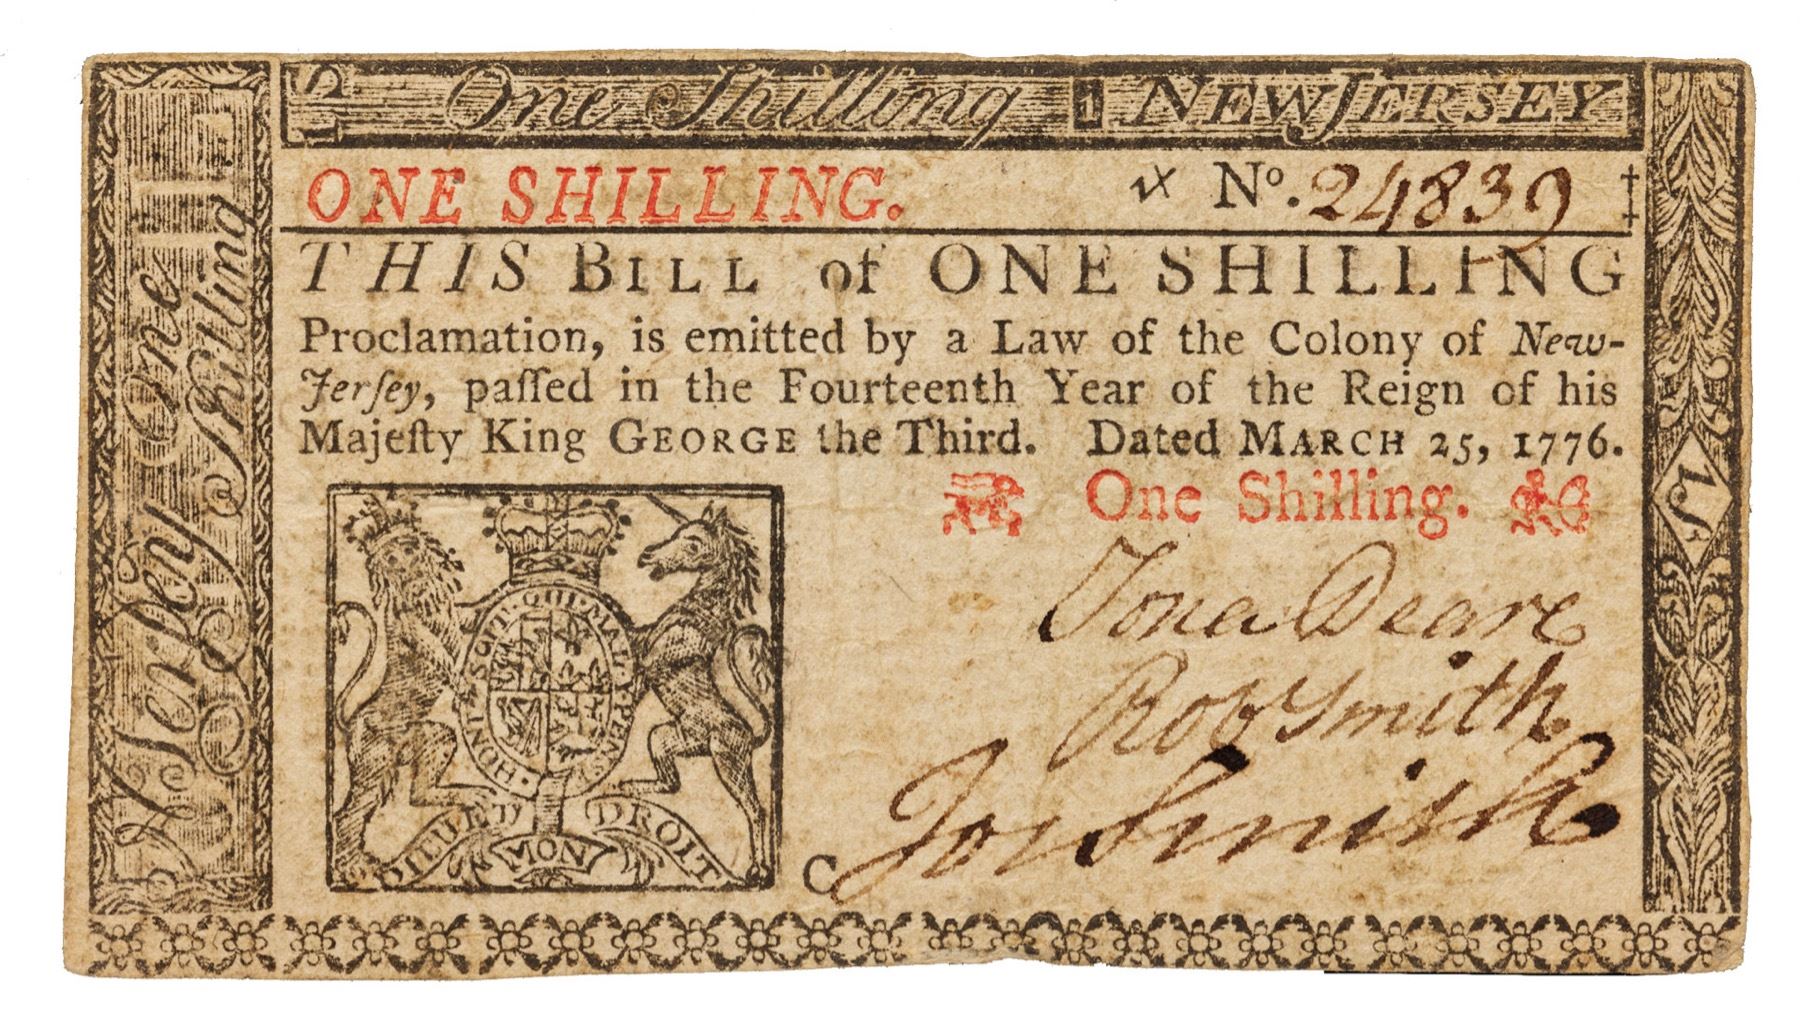 1S One Shilling 1 NEW JERSEY
ONE SHILLING. No. 24839
THIS BILL of ONE SHILLING
Proclamation, is emitted by a Law of the Colony of New-
Jerſey, paſſed in the Fourteenth Year of the Reign of his
Majeſty King GEORGE the Third. Dated MARCH 25, 1776.
One Shilling.
Jona Deare
Rob Smith.
Jos Smith
C
HONI·SOIT·QUI·MAL·Y·PENSE
DIEU ET MON DROIT
N Jerſey One
Shilling
1S